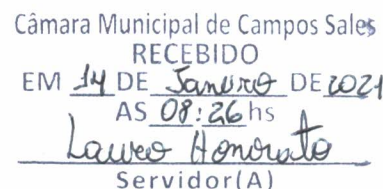 Câmara Municipal de Campos Sales
RECEBIDO
EM 14 DE Janeiro DE 2021
AS 08:26 hs
Lauro Honorato
Servidor(A)